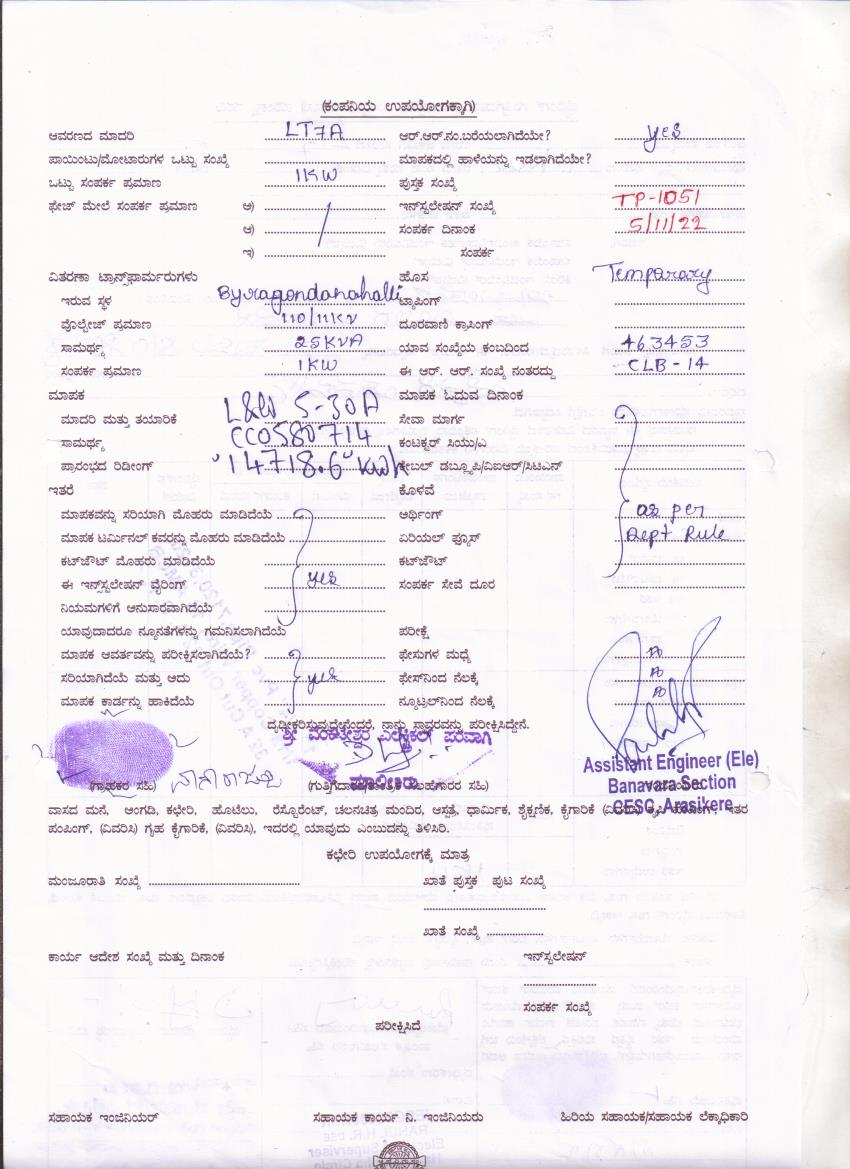 (ಕಂಪನಿಯ ಉಪಯೋಗಕ್ಕಾಗಿ)
ಆವರಣದ ಮಾದರಿ LT7A ಆರ್.ಆರ್.ನಂ.ಬರೆಯಲಾಗಿದೆಯೇ? yes
ಪಾಯಿಂಟು/ಮೋಟಾರುಗಳ ಒಟ್ಟು ಸಂಖ್ಯೆ ಮಾಪಕದಲ್ಲಿ ಹಾಳೆಯನ್ನು ಇಡಲಾಗಿದೆಯೇ?
ಒಟ್ಟು ಸಂಪರ್ಕ ಪ್ರಮಾಣ 1KW ಪುಸ್ತಕ ಸಂಖ್ಯೆ
ಫೇಜ್ ಮೇಲೆ ಸಂಪರ್ಕ ಪ್ರಮಾಣ ಅ) ಇನ್‌ಸ್ಟಲೇಷನ್ ಸಂಖ್ಯೆ TP-1051
ಆ) ಸಂಪರ್ಕ ದಿನಾಂಕ 5/11/22
ಇ) ಸಂಪರ್ಕ
ವಿತರಣಾ ಟ್ರಾನ್ಸ್‌ಫಾರ್ಮರುಗಳು ಹೊಸ Temparary
ಇರುವ ಸ್ಥಳ Byragondanahalli ಟ್ಯಾಪಿಂಗ್
ವೊಲ್ಟೇಜ್ ಪ್ರಮಾಣ 110/11KV ದೂರವಾಣಿ ಕ್ರಾಸಿಂಗ್
ಸಾಮರ್ಥ್ಯ 25KVA ಯಾವ ಸಂಖ್ಯೆಯ ಕಂಬದಿಂದ 463453
ಸಂಪರ್ಕ ಪ್ರಮಾಣ 1KW ಈ ಆರ್. ಆರ್. ಸಂಖ್ಯೆ ನಂತರದ್ದು CLB-14
ಮಾಪಕ ಮಾಪಕ ಓದುವ ದಿನಾಂಕ
ಮಾದರಿ ಮತ್ತು ತಯಾರಿಕೆ 5-30A ಸೇವಾ ಮಾರ್ಗ
ಸಾಮರ್ಥ್ಯ CC0580714 ಕಂಟಕ್ಟರ್ ಸಿಯು/ಎ
ಪ್ರಾರಂಭದ ರಿಡೀಂಗ್ "14718.6" kwh ಕೇಬಲ್ ಡಬ್ಲ್ಯೂಪಿ/ವಿಐಆರ್/ಸಿಟಿಎನ್
ಇತರೆ ಕೊಳವೆ
ಮಾಪಕವನ್ನು ಸರಿಯಾಗಿ ಮೊಹರು ಮಾಡಿದೆಯೆ ಅರ್ಥಿಂಗ್ as per
ಮಾಪಕ ಟರ್ಮಿನಲ್ ಕವರನ್ನು ಮೊಹರು ಮಾಡಿದೆಯೆ ಏರಿಯಲ್ ಫ್ಯೂಸ್ Dept Rule
ಕಟ್‌ಜೌಟ್ ಮೊಹರು ಮಾಡಿದೆಯೆ ಕಟ್‌ಜೌಟ್
ಈ ಇನ್‌ಸ್ಟಲೇಷನ್ ವೈರಿಂಗ್ yes ಸಂಪರ್ಕ ಸೇವೆ ದೂರ
ನಿಯಮಗಳಿಗೆ ಅನುಸಾರವಾಗಿದೆಯೆ
ಯಾವುದಾದರೂ ನ್ಯೂನತೆಗಳನ್ನು ಗಮನಿಸಲಾಗಿದೆಯೆ ಪರೀಕ್ಷೆ
ಮಾಪಕ ಆವರ್ತವನ್ನು ಪರೀಕ್ಷಿಸಲಾಗಿದೆಯೆ? ಫೇಸುಗಳ ಮಧ್ಯೆ
ಸರಿಯಾಗಿದೆಯೆ ಮತ್ತು ಅದು yes ಫೇಸ್‌ನಿಂದ ನೆಲಕ್ಕೆ
ಮಾಪಕ ಕಾರ್ಡನ್ನು ಹಾಕಿದೆಯೆ ನ್ಯೂಟ್ರಲ್‌ನಿಂದ ನೆಲಕ್ಕೆ
ದೃಢೀಕರಿಸುವುದೇನೆಂದರೆ, ನಾನು ಸ್ಥಾವರವನ್ನು ಪರೀಕ್ಷಿಸಿದ್ದೇನೆ.
ಶ್ರೀ ವೆಂಕಟೇಶ್ವರ ಎಲೆಕ್ಟ್ರಿಕಲ್ ಪರವಾಗಿ
ಮಾಲೀಕರು
Assistant Engineer (Ele)
Banavara Section
CESC, Arasikere
(ಗ್ರಾಹಕರ ಸಹಿ) ನಾಗರಾಜಪ್ಪ
ವಾಸದ ಮನೆ, ಅಂಗಡಿ, ಕಛೇರಿ, ಹೊಟೇಲು, ರೆಸ್ಟೋರೆಂಟ್, ಚಲನಚಿತ್ರ ಮಂದಿರ, ಆಸ್ಪತ್ರೆ, ಧಾರ್ಮಿಕ, ಶೈಕ್ಷಣಿಕ, ಕೈಗಾರಿಕೆ (ವಿವರಿಸಿ) ಇತರ
ಪಂಪಿಂಗ್, (ವಿವರಿಸಿ) ಗೃಹ ಕೈಗಾರಿಕೆ, (ವಿವರಿಸಿ), ಇದರಲ್ಲಿ ಯಾವುದು ಎಂಬುದನ್ನು ತಿಳಿಸಿರಿ.
ಕಛೇರಿ ಉಪಯೋಗಕ್ಕೆ ಮಾತ್ರ
ಮಂಜೂರಾತಿ ಸಂಖ್ಯೆ ಖಾತೆ ಪುಸ್ತಕ ಪುಟ ಸಂಖ್ಯೆ
ಖಾತೆ ಸಂಖ್ಯೆ
ಕಾರ್ಯ ಆದೇಶ ಸಂಖ್ಯೆ ಮತ್ತು ದಿನಾಂಕ ಇನ್‌ಸ್ಟಲೇಷನ್
ಸಂಪರ್ಕ ಸಂಖ್ಯೆ
ಪರೀಕ್ಷಿಸಿದೆ
ಸಹಾಯಕ ಇಂಜಿನಿಯರ್ ಸಹಾಯಕ ಕಾರ್ಯ ನಿ. ಇಂಜಿನಿಯರು ಹಿರಿಯ ಸಹಾಯಕ/ಸಹಾಯಕ ಲೆಕ್ಕಾಧಿಕಾರಿ